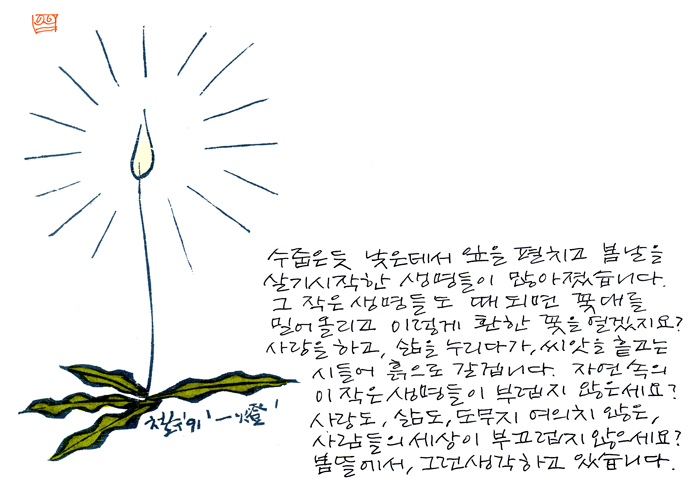 수줍은듯 낮은데서 잎을 펼치고 봄날을
살기시작한 생명들이 많아졌습니다.
그 작은 생명들도 때 되면 꽃대를
밀어올리고 이렇게 환한 꽃을 열겠지요?
사랑을 하고, 삶을 누리다가, 씨앗을 흩고는
시들어 흙으로 갈겁니다. 자연 속의
이 작은 생명들이 부럽지 않은세요?
사랑도, 삶도, 도무지 여의치 않은,
사람들의 세상이 부끄럽지 않으세요?
봄뜰에서, 그런생각하고 있습니다.
철수 '91 '一燈'